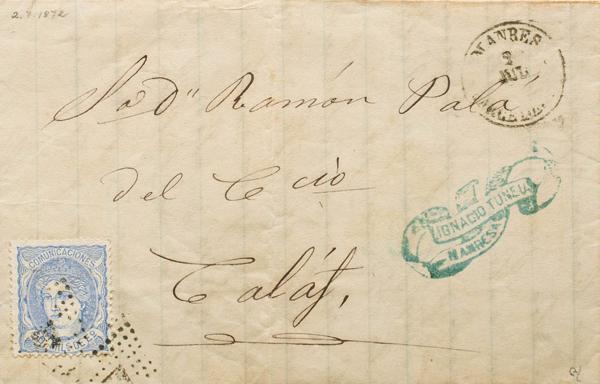 2.7.1872
MANRES
2
JUL
BARCELONA
Sr Dn Ramón Palá
del Ccio
Calaf,
IGNACIO TUNEU
MANRESA
COMUNICACIONES
50 MILS DE Eo